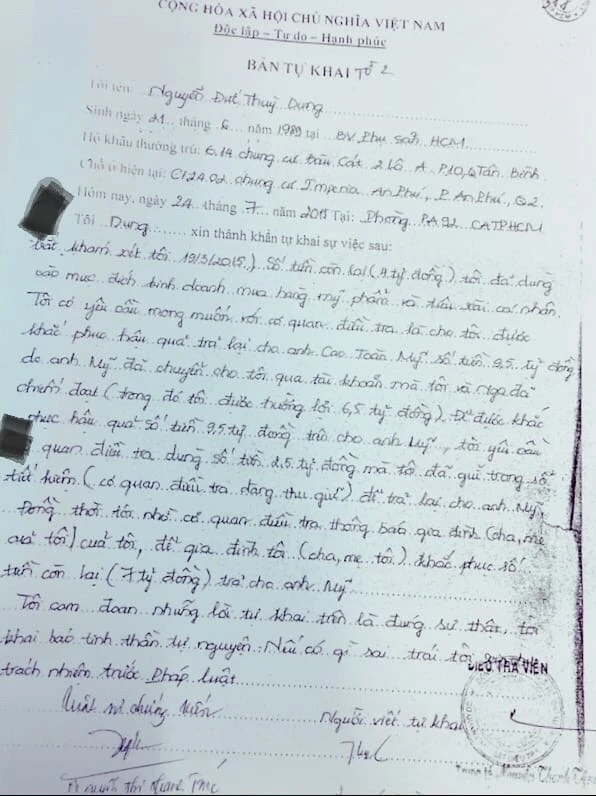 CỘNG HÒA XÃ HỘI CHỦ NGHĨA VIỆT NAM
Độc lập – Tự do – Hạnh phúc
BẢN TỰ KHAI TỜ 2
Tôi tên: Nguyễn Đức Thuỳ Dung
Sinh ngày 21 tháng 6 năm 1989 tại BV Phụ Sản HCM
Hộ khẩu thường trú: 6.14 chung cư Bàu Cát 2 Lô A, P.10, Q Tân Bình
Chỗ ở hiện tại: C124.02 chung cư Imperia An Phú, P. An Phú, Q2.
Hôm nay, ngày 24 tháng 7 năm 2015 Tại: Phòng PA92 CATPHCM
Tôi Dung xin thành khẩn tự khai sự việc sau:
bắt, khám xét tôi 19/3/2015.) Số tiền còn lại (4 tỷ đồng) tôi đã dùng
vào mục đích kinh doanh mua hàng mỹ phẩm và tiêu xài cá nhân.
Tôi có yêu cầu mong muốn với cơ quan điều tra là cho tôi được
khắc phục hậu quả trả lại cho anh Cao Toàn Mỹ số tiền 9,5 tỷ đồng
do anh Mỹ đã chuyển cho tôi qua tài khoản mà tôi và Nga đã
chiếm đoạt (trong đó tôi được hưởng lợi 6,5 tỷ đồng). Để được khắc
phục hậu quả số tiền 9,5 tỷ đồng trên cho anh Mỹ, tôi yêu cầu
quan điều tra dùng số tiền 2,5 tỷ đồng mà tôi đã gửi trong sổ
tiết kiệm (cơ quan điều tra đang thu giữ) để trả lại cho anh Mỹ.
Đồng thời tôi nhờ cơ quan điều tra thông báo gia đình (cha, mẹ
của tôi) của tôi, để gia đình tôi (cha, mẹ tôi) khắc phục số
tiền còn lại (7 tỷ đồng) trả cho anh Mỹ.
Tôi cam đoan những lời tự khai trên là đúng sự thật, tôi
khai báo tinh thần tự nguyện. Nếu có gì sai trái tôi
trách nhiệm trước Pháp luật.
ĐIỀU TRA VIÊN
Luật sư chứng kiến
Người viết tự khai